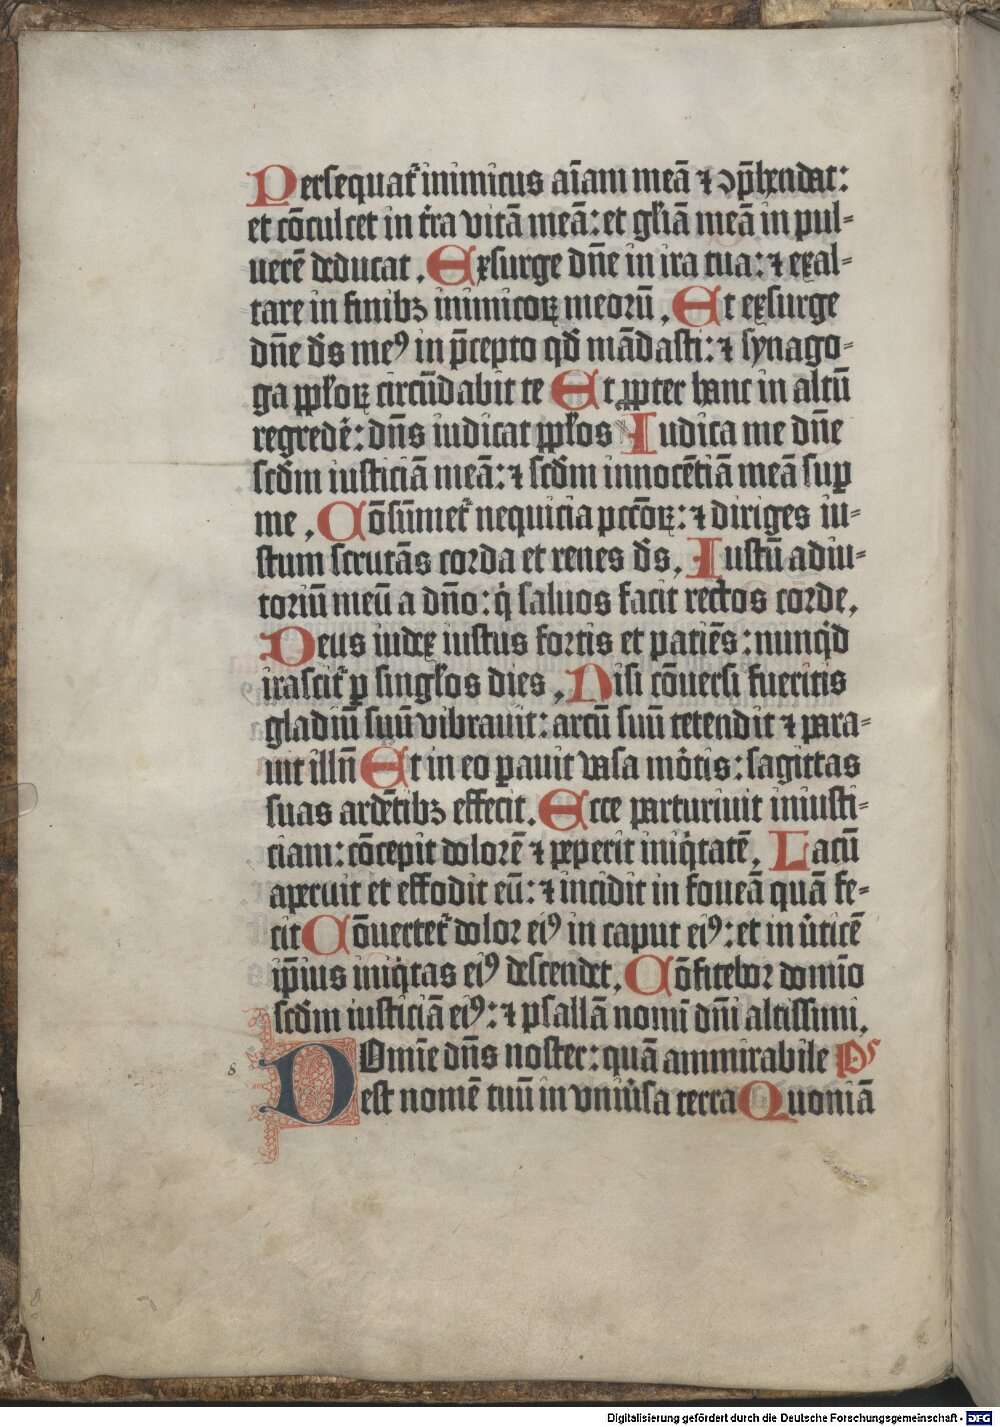 Persequat᷑ inimicus aīam meā ⁊ ꝯp̄hendat:
et cōculcet in t᷑ra vitā meā: et gl̄iam meā in pul⸗
uerē deducat. Exsurge dn̄e in ira tua: ⁊ exal⸗
tare in finibꝫ inimicoꝝ meorū. Et exsurge
dn̄e d̄s meꝰ in p̄cepto qd̄ mādasti: ⁊ synago⸗
ga ppl̄oꝝ circūdabit te Et ꝓpter hanc in altū
regrede᷑: dn̄s iudicat ppl̄os Iudica me dn̄e
scd̄m iusticiā meā: ⁊ scd̄m innocētiā meā suꝑ
me. Cōsūmet᷑ nequicia pcc̄oꝝ: ⁊ diriges iu⸗
stum scrutās corda et renes d̄s. Iustū adiu⸗
toriū meū a dn̄o: q̇ saluos facit rectos corde.
Deus iudex iustus fortis et patiēs: nunq̇d
irascit᷑ ꝑ singl̄os dies. Nisi cōuersi fueritis
gladiū suū vibrauit: arcū suū tetendit ⁊ para⸗
uit illū Et in eo ꝑauit vasa mo᷑tis: sagittas
suas ardētibꝫ effecit. Ecce parturiuit iniusti⸗
ciam: cōcepit dolorē ⁊ peperit iniq̇tatē. Lacū
aperuit et effodit eū: ⁊ incidit in foueā quā fe⸗
cit Cōuertet᷑ dolor eiꝰ in caput eiꝰ: et in u᷑ticē
ip̄ius iniq̇tas eiꝰ descendet. Cōfitebor domīo
scd̄m iusticiā eiꝰ: ⁊ psallā nomī dn̄i altissimi.
DOmīe dn̄s noster: quā ammirabile Ps
8 est nomē tuū in vniu᷑sa terra Quoniā
Digitalisierung gefördert durch die Deutsche Forschungsgemeinschaft - DFG